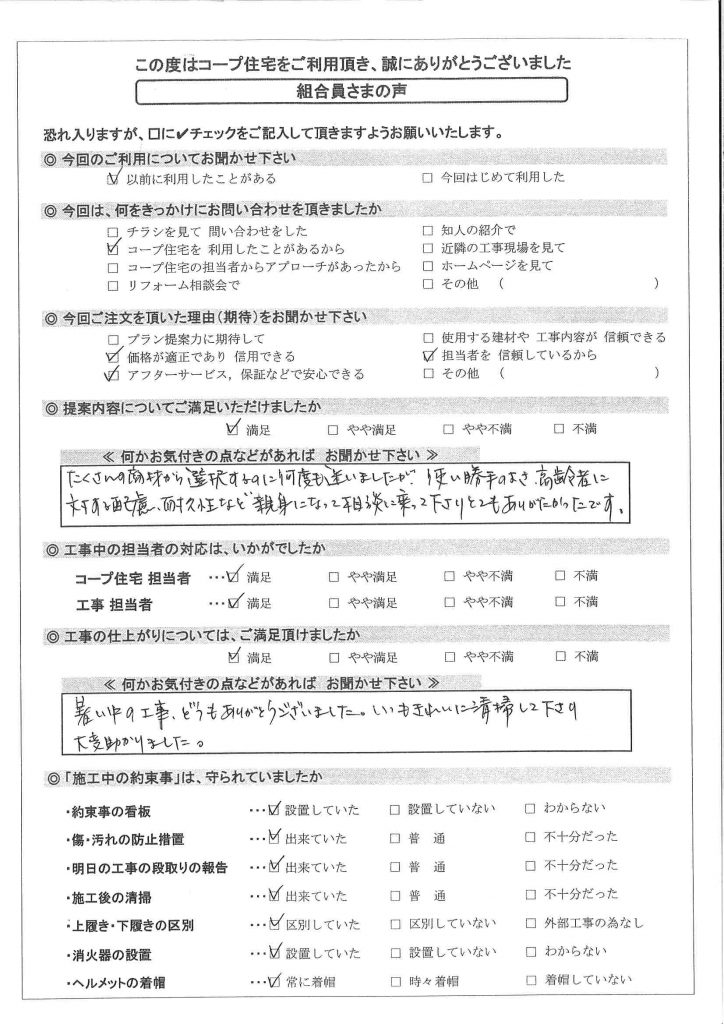 この度はコープ住宅をご利用頂き、誠にありがとうございました
組合員さまの声
恐れ入りますが、□に✔チェックをご記入して頂きますようお願いいたします。
◎ 今回のご利用についてお聞かせ下さい
☑ 以前に利用したことがある □ 今回はじめて利用した
◎ 今回は、何をきっかけにお問い合わせを頂きましたか
□ チラシを見て 問い合わせをした □ 知人の紹介で
☑ コープ住宅を 利用したことがあるから □ 近隣の工事現場を見て
□ コープ住宅の担当者からアプローチがあったから □ ホームページを見て
□ リフォーム相談会で □ その他 ( )
◎ 今回ご注文を頂いた理由(期待)をお聞かせ下さい
□ プラン提案力に期待して □ 使用する建材や 工事内容が 信頼できる
☑ 価格が適正であり 信用できる ☑ 担当者を 信頼しているから
☑ アフターサービス，保証などで安心できる □ その他 ( )
◎ 提案内容についてご満足いただけましたか
☑ 満足 □ やや満足 □ やや不満 □ 不満
≪ 何かお気付きの点などがあれば お聞かせ下さい ≫
たくさんの商材から選択するのに何度も迷いましたが、使い勝手のよさ、高齢者に
対する配慮、耐久性など親身になって相談に乗って下さりとてもありがたかったです。
◎ 工事中の担当者の対応は、いかがでしたか
コープ住宅 担当者 …☑ 満足 □ やや満足 □ やや不満 □ 不満
工事 担当者 …☑ 満足 □ やや満足 □ やや不満 □ 不満
◎ 工事の仕上がりについては、ご満足頂けましたか
☑ 満足 □ やや満足 □ やや不満 □ 不満
≪ 何かお気付きの点などがあれば お聞かせ下さい ≫
暑い中の工事、どうもありがとうございました。いつもきれいに清掃して下さり
大変助かりました。
◎ 「施工中の約束事」は、守られていましたか
・約束事の看板 …☑ 設置していた □ 設置していない □ わからない
・傷・汚れの防止措置 …☑ 出来ていた □ 普 通 □ 不十分だった
・明日の工事の段取りの報告 …☑ 出来ていた □ 普 通 □ 不十分だった
・施工後の清掃 …☑ 出来ていた □ 普 通 □ 不十分だった
・上履き・下履きの区別 …☑ 区別していた □ 区別していない □ 外部工事の為なし
・消火器の設置 …☑ 設置していた □ 設置していない □ わからない
・ヘルメットの着帽 …☑ 常に着帽 □ 時々着帽 □ 着帽していない